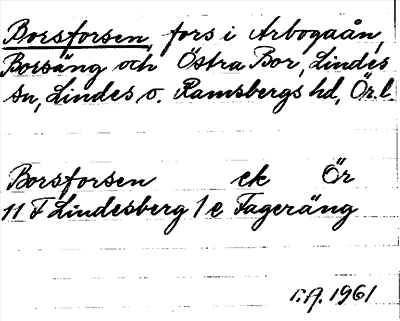 Borsforsen, fors i Arbogaån,
Borsäng och Östra Bor, Lindes
sn, Lindes o. Ramsbergs hd, Ör. l.
Borsforsen ek Ör
11 F Lindesberg 1 e Fageräng
r.A. 1961